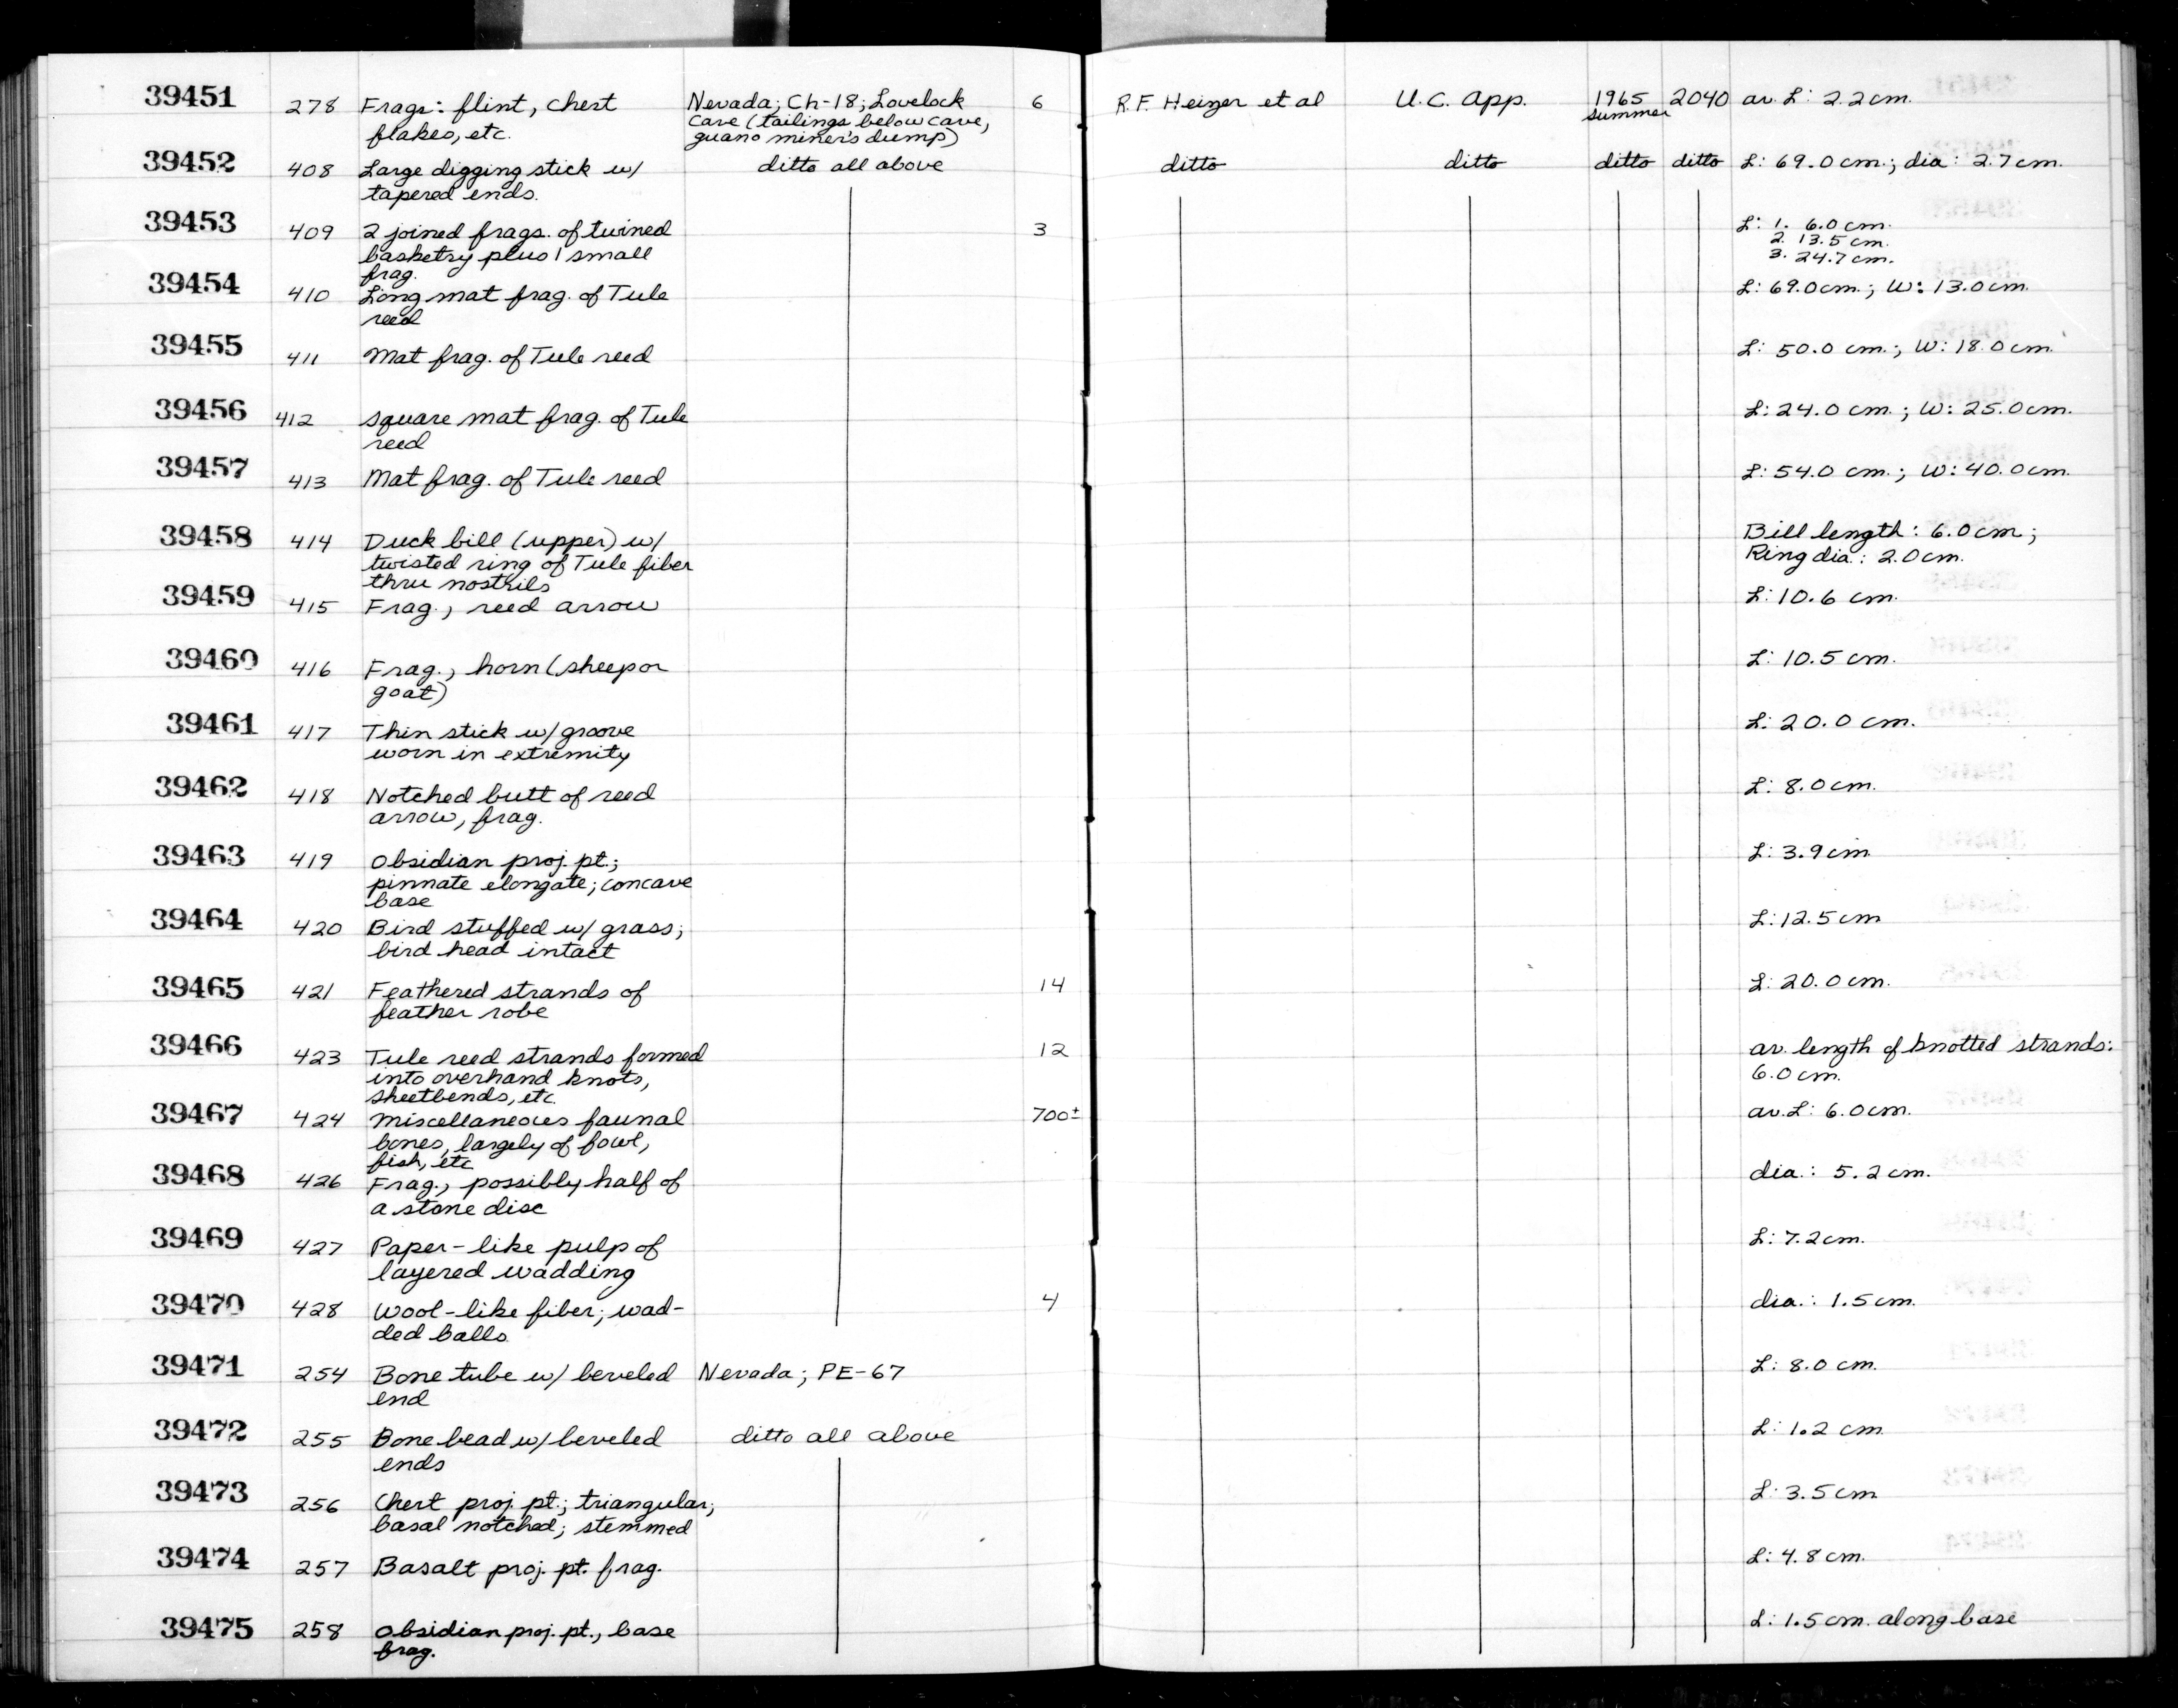 39451 278 Frags: flint, chert Nevada; Ch-18; Lovelock 6 R.F. Heizer et al U.C. App. 1965 2040 av. L: 2.2 cm.
flakes, etc. Cave (tailings below cave, summer
guano miner's dump)
39452 408 Large digging stick w/ ditto all above ditto ditto ditto ditto L: 69.0 cm.; dia: 2.7 cm.
tapered ends.
39453 409 2 joined frags. of twined 3 L: 1. 6.0 cm.
basketry plus 1 small 2. 13.5 cm.
frag. 3. 24.7 cm.
39454 410 Long mat frag. of Tule L: 69.0 cm.; W: 13.0 cm.
reed
39455 411 Mat frag. of Tule reed L: 50.0 cm.; W: 18.0 cm.
39456 412 square mat frag. of Tule L: 24.0 cm.; W: 25.0 cm.
reed
39457 413 Mat frag. of Tule reed L: 54.0 cm.; W: 40.0 cm.
39458 414 Duck bill (upper) w/ Bill length: 6.0 cm;
twisted ring of Tule fiber Ring dia.: 2.0 cm.
thru nostrils
39459 415 Frag., reed arrow L: 10.6 cm.
39460 416 Frag., horn (sheep or L: 10.5 cm.
goat)
39461 417 Thin stick w/ groove L: 20.0 cm.
worn in extremity
39462 418 Notched butt of reed L: 8.0 cm.
arrow, frag.
39463 419 Obsidian proj. pt.; L: 3.9 cm
pinnate elongate; concave
base
39464 420 Bird stuffed w/ grass; L: 12.5 cm
bird head intact
39465 421 Feathered strands of 14 L: 20.0 cm.
feather robe
39466 423 Tule reed strands formed 12 av. length of knotted strands:
into overhand knots, 6.0 cm.
sheetbends, etc.
39467 424 Miscellaneous faunal 700± av. L: 6.0 cm.
bones, largely of fowl,
fish, etc
39468 426 Frag., possibly half of dia.: 5.2 cm.
a stone disc
39469 427 Paper-like pulp of L: 7.2 cm.
layered wadding
39470 428 Wool-like fiber; wad- 4 dia.: 1.5 cm.
ded balls
39471 254 Bone tube w/ beveled Nevada; PE-67 L: 8.0 cm.
end
39472 255 Bone bead w/ beveled ditto all above L: 1.2 cm
ends
39473 256 Chert proj. pt.; triangular; L: 3.5 cm
basal notched; stemmed
39474 257 Basalt proj. pt. frag. L: 4.8 cm.
39475 258 Obsidian proj. pt., base L: 1.5 cm. along base
frag.